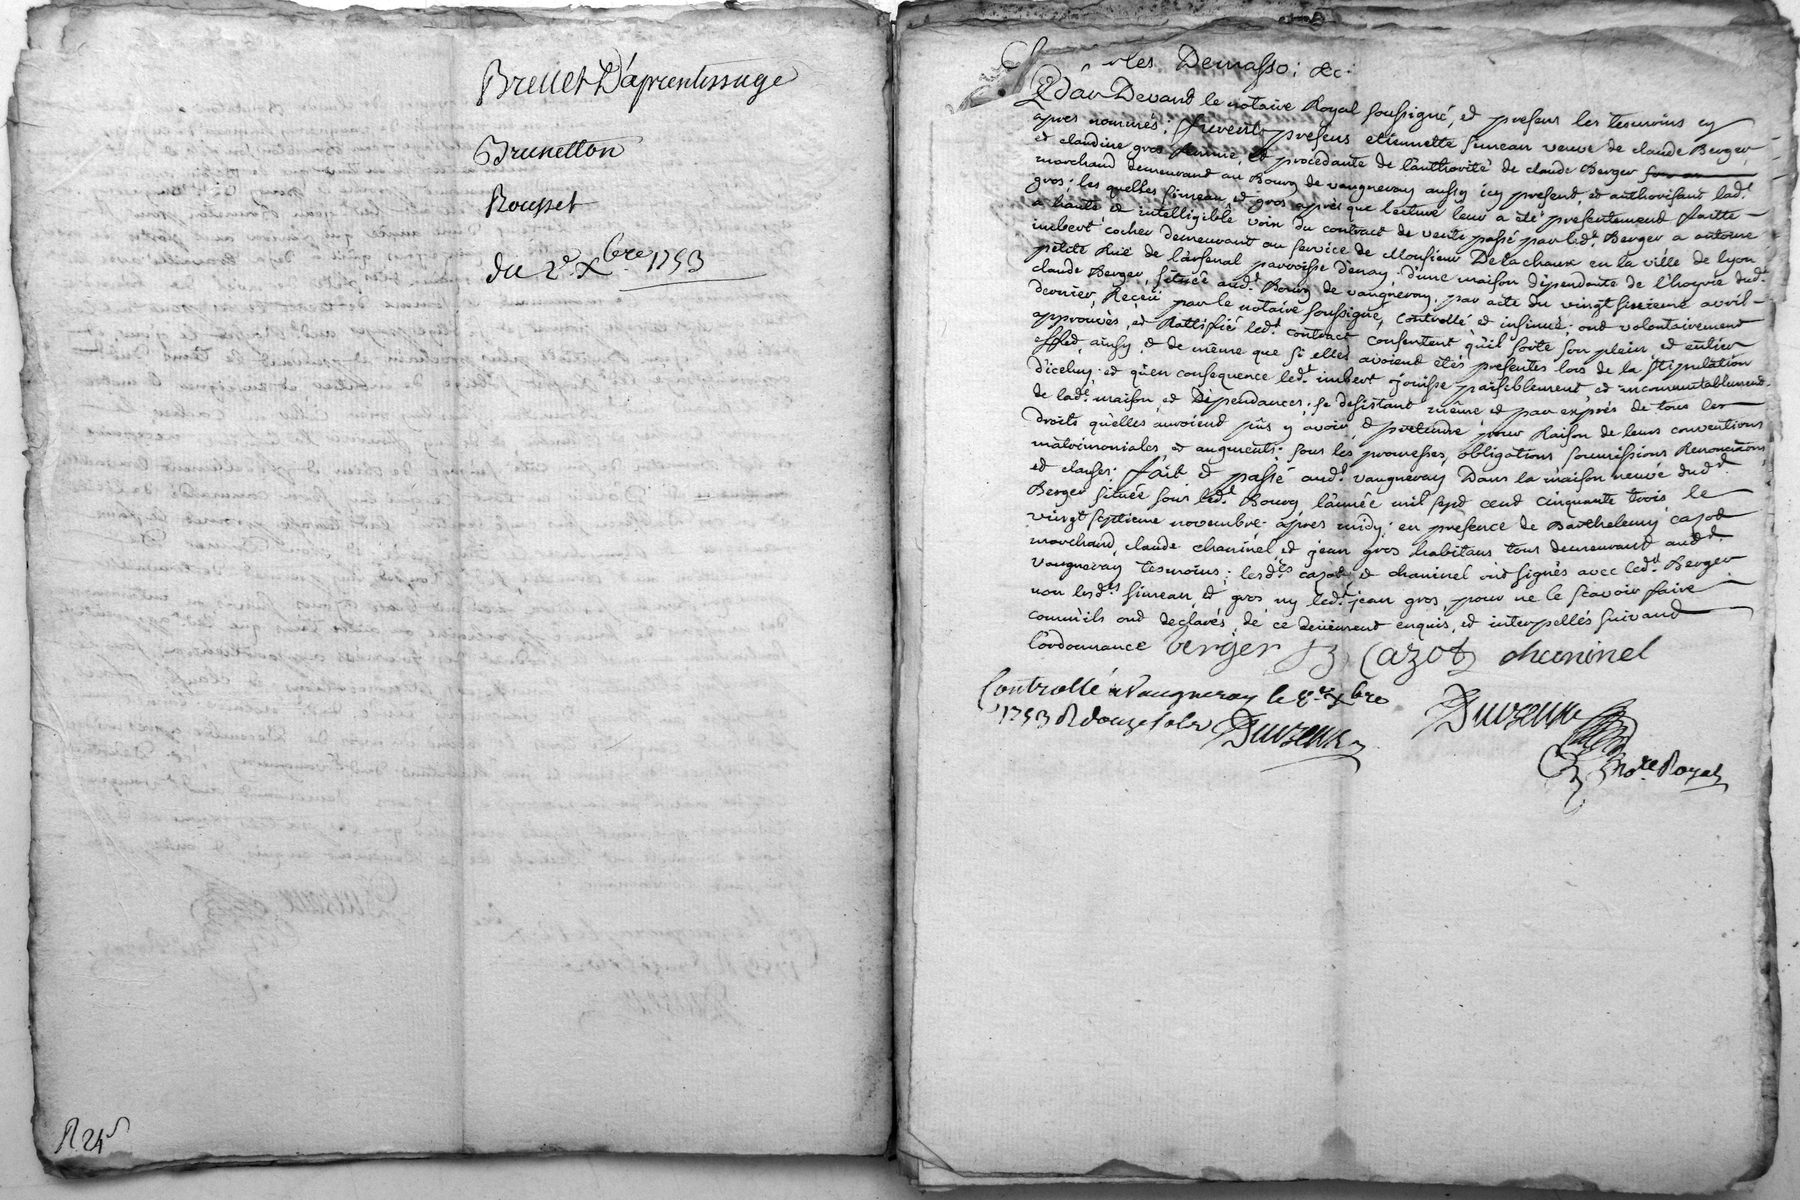 Brevet D'aprentissage
Brunetton
Rousset
du 2e Xbre 1753
R 24s
Les Demasso: &c:
Pardevand le notaire Royal soussigné, et presens les tesmoins cy
apres nommés; furent presens etiennette simean veuve de claude Berger
et claudine gros femme, et procedante de l'authorité de claude Berger
marchand demeurand au Bourg de vaugneray aussy icy present, et authorisant lad.e
gros; les quelles simean, et gros après que lecture leur a été presentement faitte
a haute et intelligible voix du contract de vente passé par led.t Berger a antoine
imbert cocher demeurant au service de Monsieur Delachaux en la ville de lyon
petite Rue de l'arsenal parroisse d'enay d'une maison dependante de l'hoyrie dud.t
claude Berger, située aud.t Bourg de vaugneray, par acte du vingt sixieme avril
dernier, Reçeu par le notaire soussigné, controllé et insinué; ond volontairement
approuvés, et Rattifié led.t contract consentent qu'il sorte son plein et entier
effet, ainsy, et de même que si elles avoiend étés presentes lors de la stipulation
d'iceluy et qu'en consequence led.t imbert jouisse paisiblement, et incommutablement
de lad.e maison, et dependances; se desistant même et par exprès de tous les
droits qu'elles auroiend pûs y avoir, et pretendre pour Raison de leurs conventions
matrimoniales, et augments. sous les promesses, obligations soumissions Renonciations
et clauses: fait et passé aud.t vaugneray Dans la maison neuve dud.t
Berger située sous led.t Bourg, l'année mil sept cend cinquante trois le
vingt septieme novembre après midy: en presence de Barthelemy cazot
marchand, claude chaninel, et jean gros habitans tous demeurand aud.t
vaugneray tesmoins; lesd.ts cazot, et chaninel ont signés avec led.t Berger
non lesd.ts simean, et gros ny led.t jean gros, pour ne le scavoir faire
comm'ils ond declarés, de ce deüement enquis, et interpellés suivand
l'ordonnance Verger Cazot chaninel
Controllé a Vaugneray le 8e Xbre
1753 R douze sols
No.re Royal